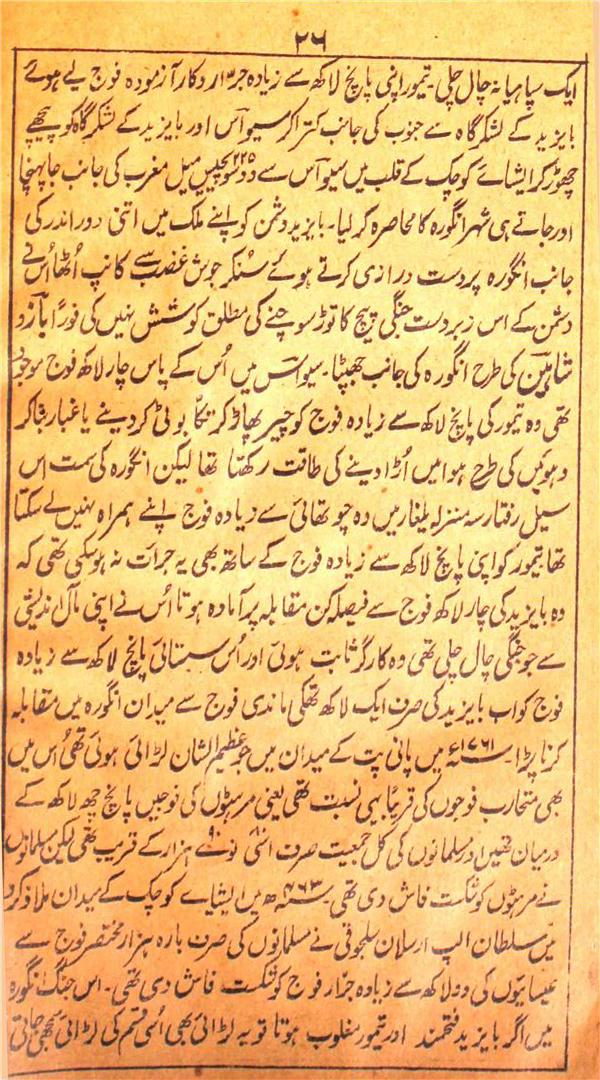 ۲۶
ایک سپاہیانہ چال چلی۔ تیمور اپنی پانچ لاکھ سے زیادہ جرّار و کار آزمودہ فوج لیے ہوئے
بایزید کے لشکر گاہ سے جنوب کی جانب کترا کر سیواس اور بایزید کے لشکر گاہ کو پیچھے
چھوڑ کر ایشائے کوچک کے قلب میں سیواس سے دو سو پچیس ۲۲۵ میل مغرب کی جانب جا پہنچا
اور جاتے ہی شہر انگورہ کا محاصرہ کر لیا۔ بایزید دشمن کو اپنے ملک میں اتنی دور اندر کی
جانب انگورہ پر دست درازی کرتے ہوئے سُنکر جوش غضب سے کانپ اُٹھا اُس نے
دشمن کے اس زبردست جنگی پیچ کا توڑ سوچنے کی مطلق کوشش نہیں کی فوراً بازو
شاہین کی طرح انگورہ کی جانب جھپٹا۔ سیواس میں اُس کے پاس چار لاکھ فوج موجود
تھی وہ تیمور کی پانچ لاکھ سے زیادہ فوج کو چیر پھاڑ کر تکا بوٹی کر دینے یا غبار بنا کر
دہوئیں کی طرح ہوا میں اُڑا دینے کی طاقت رکھتا تھا لیکن انگورہ کی سمت اس
سیل رفتار سہ منزلہ یلغار میں وہ چوتھائی سے زیادہ فوج اپنے ہمراہ نہیں لے سکتا
تھا تیمور کو اپنی پانچ لاکھ سے زیادہ فوج کے ساتھ بھی یہ جرائت نہ ہو سکی تھی کہ
وہ بایزید کی چار لاکھ فوج سے فیصلہ کن مقابلہ پر آمادہ ہوتا اُس نے اپنی مآل اندیشی
سے جو جنگی چال چلی تھی وہ کارگر ثابت ہوئی اور اُس سستائی پانچ لاکھ سے زیادہ
فوج کو اب بایزید کی صرف ایک لاکھ تھکی ماندی فوج سے میدان انگورہ میں مقابلہ
کرنا پڑا۔ سنہ ۱۷۶۱ء میں پانی پت کے میدان میں جو عظیم الشان لڑائی ہوئی تھی اُس میں
بھی متحارب فوجوں کی قریباً یہی نسبت تھی یعنی مرہٹوں کی فوجیں پانچ چھ لاکھ کے
درمیان تھیں اور مسلمانوں کی کل جمعیت صرف اسّی ۸۰ نوے ۹۰ ہزار کے قریب تھی لیکن مسلمانوں
نے مرہٹوں کو شکست فاش دی تھی۔ سنہ ۴۶۳ھ میں ایشیاے کوچک کے میدان ملاذ کرد
میں سلطان الپ ارسلان سلجوقی نے مسلمانوں کی صرف بارہ ہزار مختصر فوج سے
عیسائیوں کی دو لاکھ سے زیادہ جرّار فوج کو شکست فاش دی تھی۔ اس جنگ انگورہ
میں اگر بایزید فتحمند اور تیمور مغلوب ہوتا تو یہ لڑائی بھی اُسی قسم کی لڑائی سمجھی جاتی